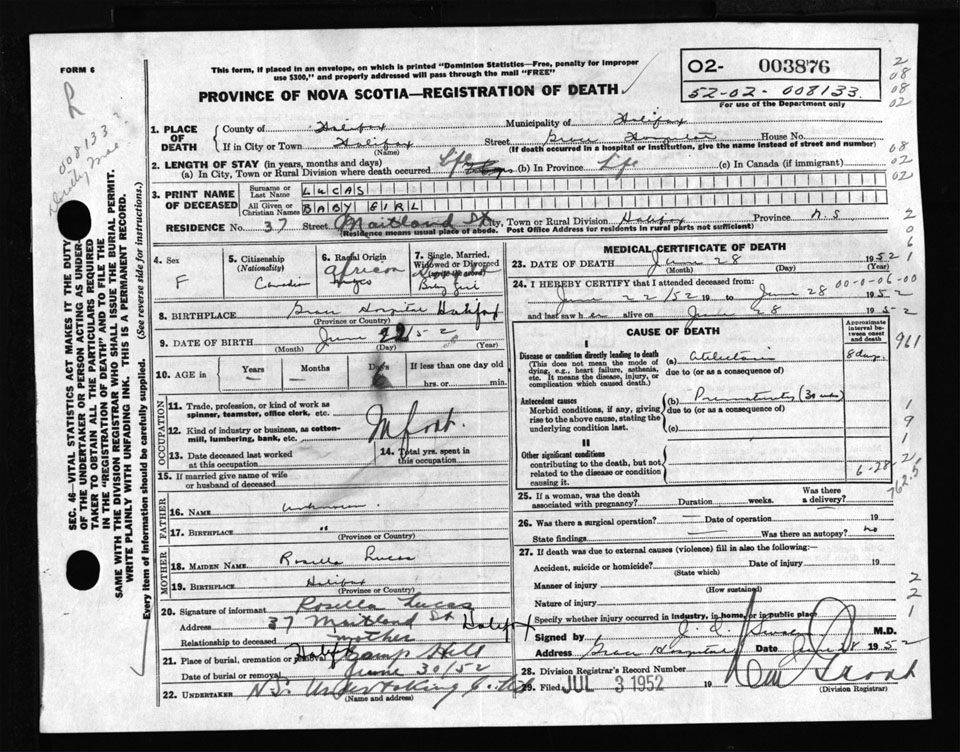 FORM 6
This form, if placed in an envelope, on which is printed "Dominion Statistics—Free, penalty for improper
use $300," and properly addressed will pass through the mail "FREE"
PROVINCE OF NOVA SCOTIA—REGISTRATION OF DEATH
02- 003876
52-02-008133
For use of the Department only
008133
SEC. 46—VITAL STATISTICS ACT MAKES IT THE DUTY
OF THE UNDERTAKER OR PERSON ACTING AS UNDER-
TAKER TO OBTAIN ALL THE PARTICULARS REQUIRED
IN THE "REGISTRATION OF DEATH" AND TO FILE THE
SAME WITH THE DIVISION REGISTRAR WHO SHALL ISSUE THE BURIAL PERMIT.
WRITE PLAINLY WITH UNFADING INK. THIS IS A PERMANENT RECORD.
Every item of Information should be carefully supplied. (See reverse side for instructions.)
1. PLACE OF DEATH
County of Halifax Municipality of Halifax
If in City or Town Halifax Street Grace Hospital House No.
(Name) (If death occurred in a hospital or institution, give the name instead of street and number)
2. LENGTH OF STAY (in years, months and days)
(a) In City, Town or Rural Division where death occurred Life (b) In Province Life (c) In Canada (if immigrant)
3. PRINT NAME OF DECEASED
Surname or Last Name LUCAS
All Given or Christian Names BABY GIRL
RESIDENCE No. 37 Street Maitland St City, Town or Rural Division Halifax Province N.S
(Residence means usual place of abode. Post Office Address for residents in rural parts not sufficient)
4. Sex F
5. Citizenship (Nationality) Canadian
6. Racial Origin African Negro
7. Single, Married, Widowed or Divorced Baby Girl
8. BIRTHPLACE Grace Hospital Halifax
(Province or Country)
9. DATE OF BIRTH June 22/52
(Month) (Day) (Year)
10. AGE in Years — Months — Days 6 If less than one day old
hrs. or min.
OCCUPATION
11. Trade, profession, or kind of work as
spinner, teamster, office clerk, etc.
12. Kind of industry or business, as cotton-
mill, lumbering, bank, etc.
13. Date deceased last worked
at this occupation
14. Total yrs. spent in
this occupation
15. If married give name of wife
or husband of deceased
FATHER
16. NAME unknown
17. BIRTHPLACE "
(Province or Country)
MOTHER
18. MAIDEN NAME Rosella Lucas
19. BIRTHPLACE Halifax
(Province or Country)
20. Signature of informant Rosella Lucas
Address 37 Maitland St Halifax
Relationship to deceased mother
21. Place of burial, cremation or removal Halifax Camp Hill
Date of burial or removal June 30/52
22. UNDERTAKER N.S. Undertaking Co. Ltd
(Name and address)
MEDICAL CERTIFICATE OF DEATH
23. DATE OF DEATH June 28 1952
(Month) (Day) (Year)
24. I HEREBY CERTIFY that I attended deceased from:
June 22/52 19 to June 28 1952
00-0-06-00
and last saw her alive on June 28 1952
CAUSE OF DEATH
Approximate interval between onset and death
I
Disease or condition directly leading to death
(This does not mean the mode of
dying, e.g., heart failure, asthenia,
etc. It means the disease, injury, or
complication which caused death.)
(a) Atelectasis 8 days
due to (or as a consequence of)
Antecedent causes
Morbid conditions, if any, giving
rise to the above cause, stating the
underlying condition last.
(b) Prematurity (30 wks)
due to (or as a consequence of)
(c)
II
Other significant conditions
contributing to the death, but not
related to the disease or condition
causing it.
6-28-2
762.5
25. If a woman, was the death
associated with pregnancy? Duration weeks. Was there
a delivery?
26. Was there a surgical operation? — Date of operation — 19
State findings Was there an autopsy? no
27. If death was due to external causes (violence) fill in also the following:—
Accident, suicide or homicide? Date of injury 19
(State which)
Manner of injury
(How sustained)
Nature of injury
Specify whether injury occurred in industry, in home, or in public place
Signed by M.D.
Address Grace Hospital Date June 28 1952
28. Division Registrar's Record Number
29. Filed JUL 3 1952 19
(Division Registrar)
2
08
08
02
08
02
2
0
6
1
961
1
9
1
2
2
1